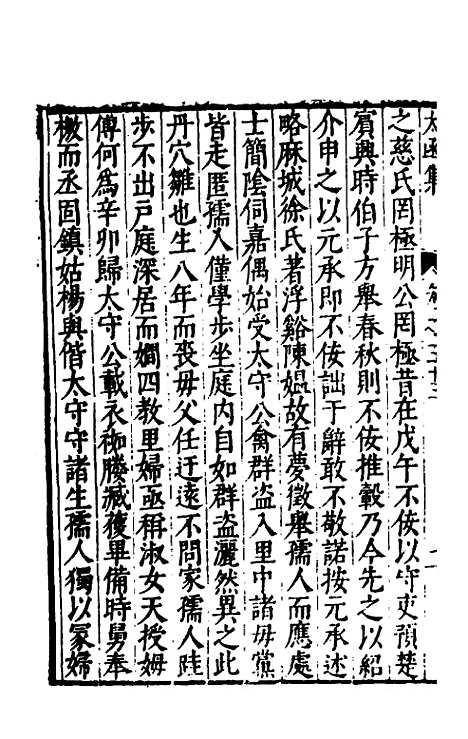 太函集
之慈氏罔極明公罔極昔在戊午不佞以守吏預楚
賓興時伯子方舉春秋則不佞推轂乃今先之以紹
介申之以元承即不佞詘于辭敢不敬諾按元承述
略麻城徐氏著浮谿陳媼故有夢徵舉孺人而應處
士簡陰伺嘉偶始受太守公禽群盜入里中諸毋黨
皆走匿孺人僅學步坐庭内自如群盜灑然異之此
丹穴雛也生八年而喪毋父任迂遠不問家孺人跬
步不出戸庭深居而嫺四教里婦亟稱淑女天授姆
傅何爲辛卯歸太守公載衣枷媵臧獲畢備時舅奉
檄而丞固鎮姑楊與偕太守守諸生孺人獨以冢婦